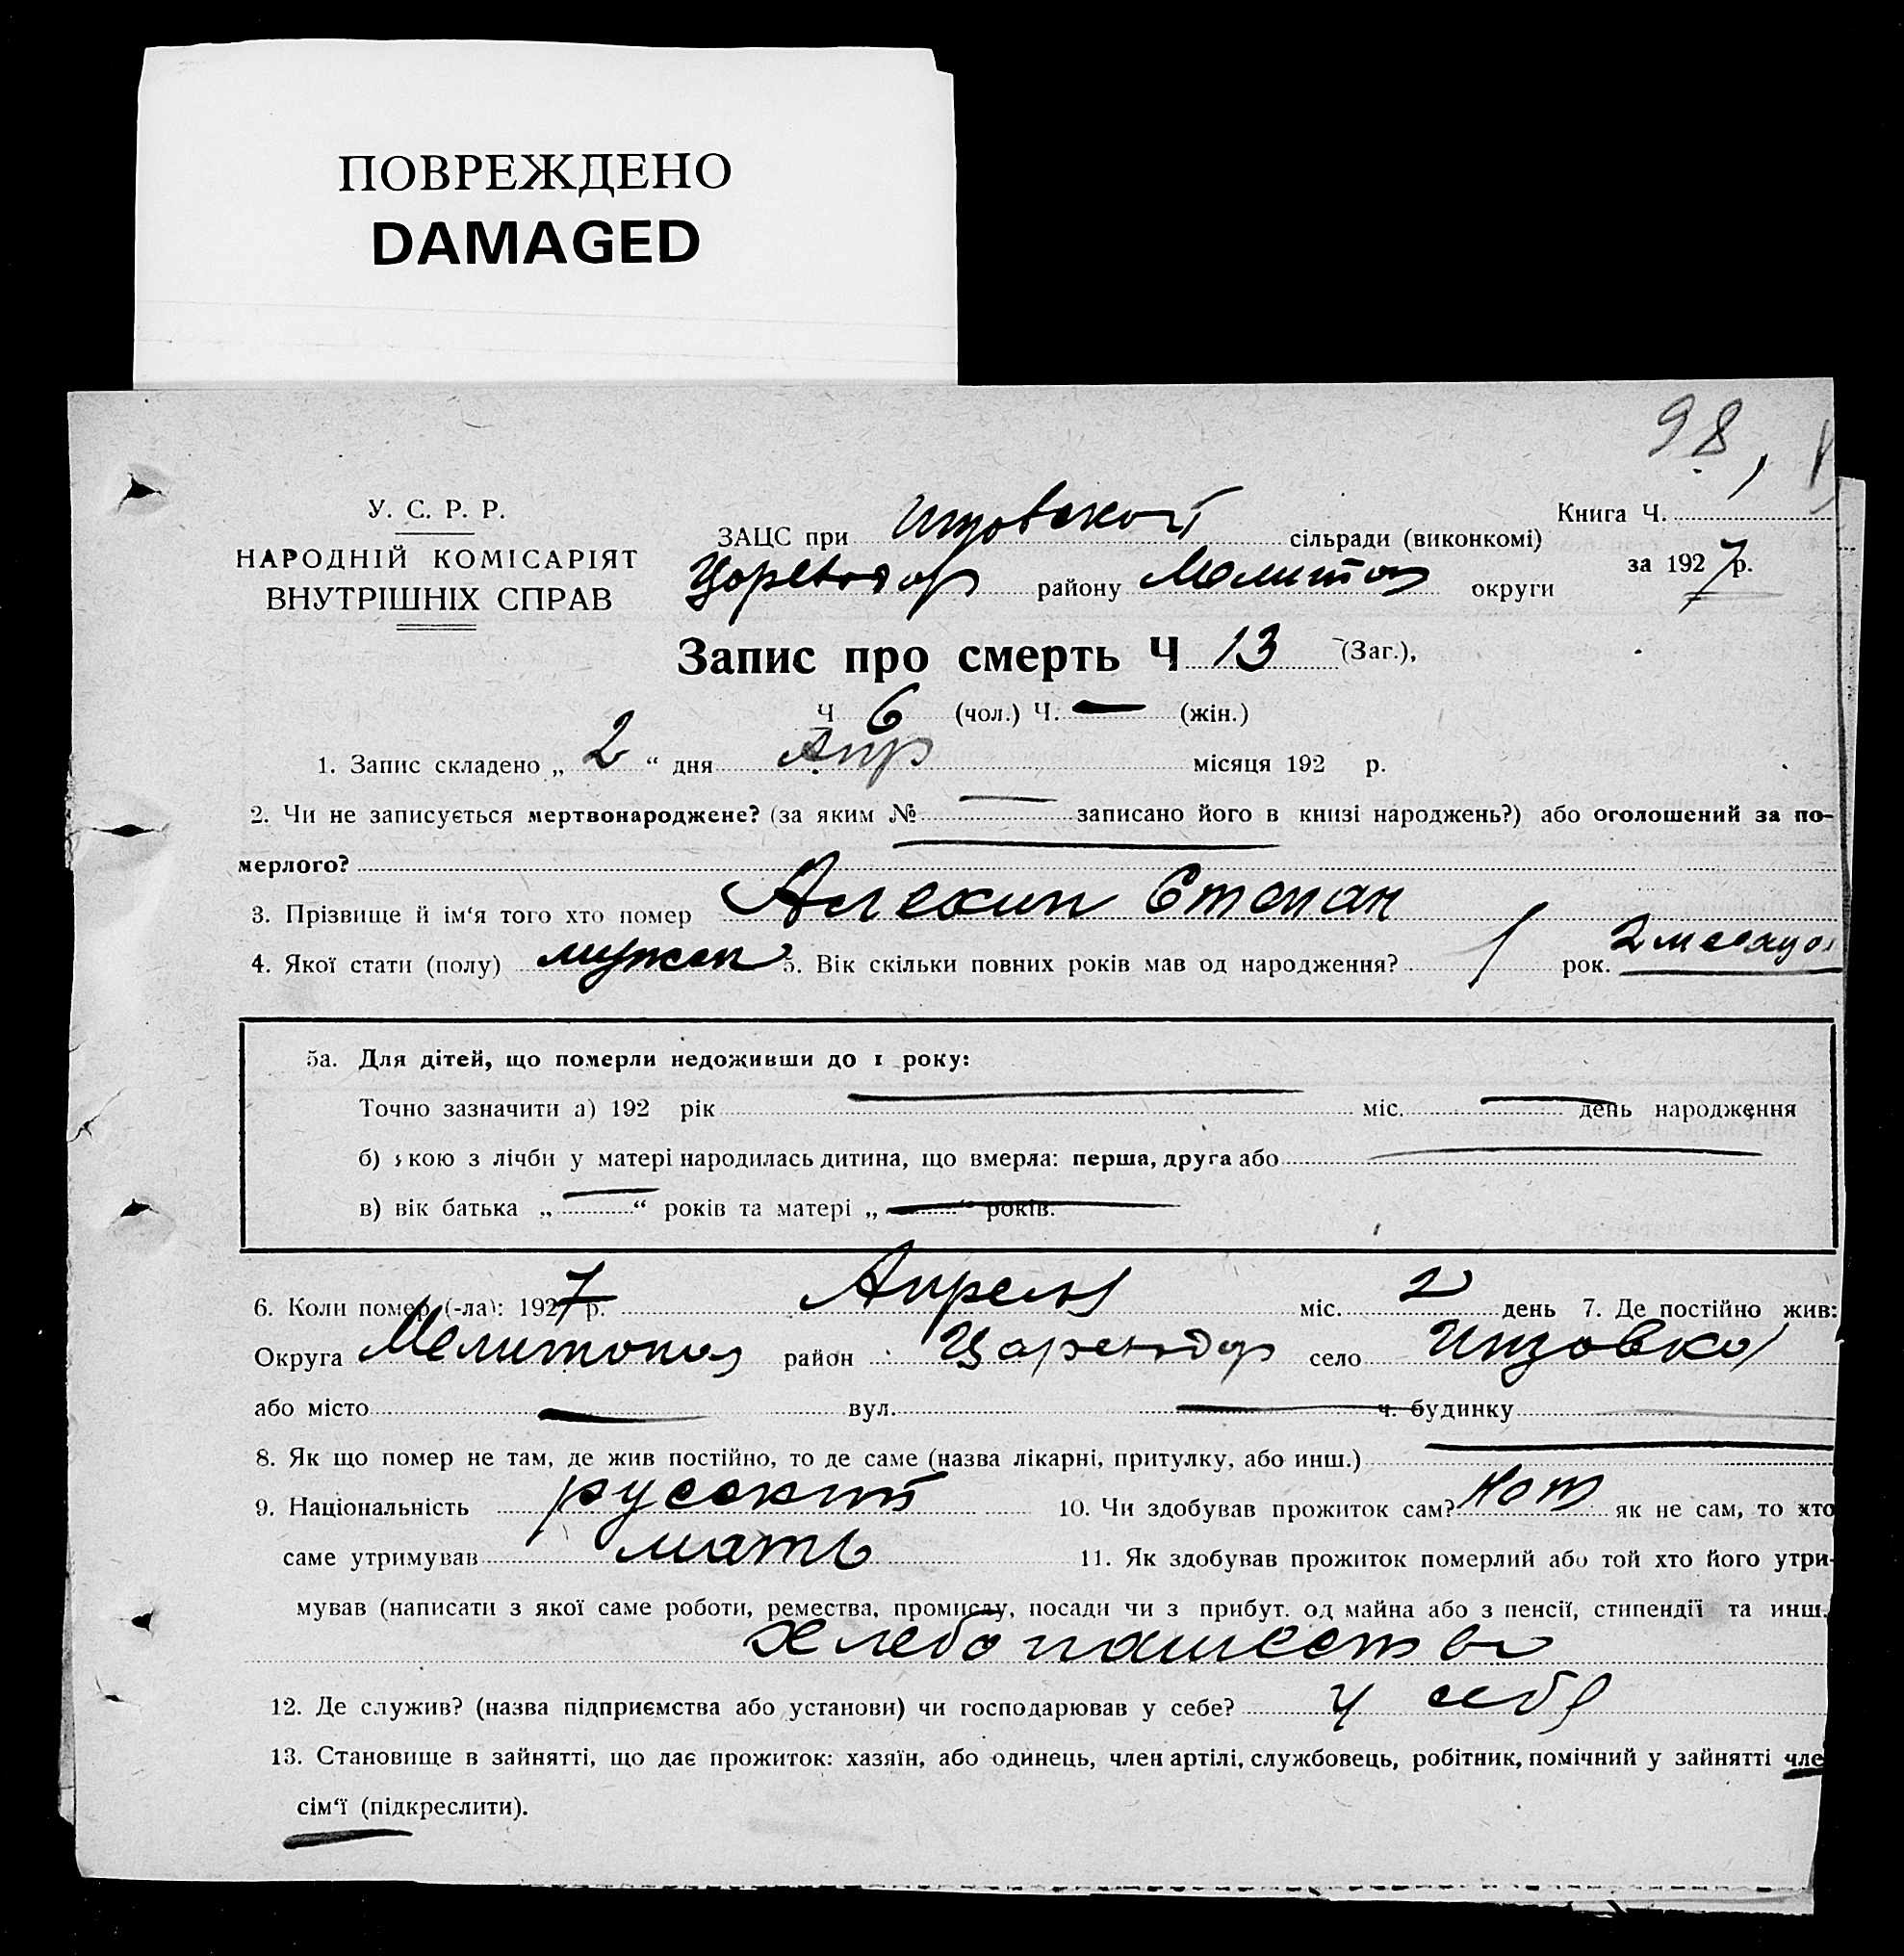 ПОВРЕЖДЕНО
DAMAGED
98,
У. С. Р. Р.
НАРОДНІЙ КОМІСАРІЯТ
ВНУТРІШНІХ СПРАВ
ЗАЦС при сільради (виконкомі)
Книга Ч.
району Мелитоп округи
за 1927 р.
Запис про смерть Ч 13 (Заг.),
Ч 6 (чол.) Ч. — (жін.)
1. Запис складено „ 2 “ дня Апр місяця 192 р.
2. Чи не записується мертвонароджене? (за яким № — записано його в книзі народжень?) або оголошений за по-
мерлого?
3. Прізвище й ім‘я того хто помер Алехин Степан
4. Якої стати (полу) мужск 5. Вік скільки повних років мав од народження? 1 рок. 2 месяца
5а. Для дітей, що померли недоживши до 1 року:
Точно зазначити а) 192 рік — міс. — день народження
б) якою з лічби у матері народилась дитина, що вмерла: перша, друга або —
в) вік батька „ — “ років та матері „ — “ років.
6. Коли помер (-ла): 1927 р. Апрель міс. 2 день 7. Де постійно жив:
Округа Мелитопол район Цареводар село
або місто — вул. — ч. будинку —
8. Як що помер не там, де жив постійно, то де саме (назва лікарні, притулку, або инш.) —
9. Національність русский 10. Чи здобував прожиток сам? нет як не сам, то хто
саме утримував мать 11. Як здобував прожиток померлий або той хто його утри-
мував (написати з якої саме роботи, ремества, промислу, посади чи з прибут. од майна або з пенсії, стипендії та инш.
хлебопашество
12. Де служив? (назва підприємства або установи) чи господарював у себе? у себя
13. Становище в зайнятті, що дає прожиток: хазяїн, або одинець, член артілі, службовець, робітник, помічний у зайнятті чле
сім‘ї (підкреслити).